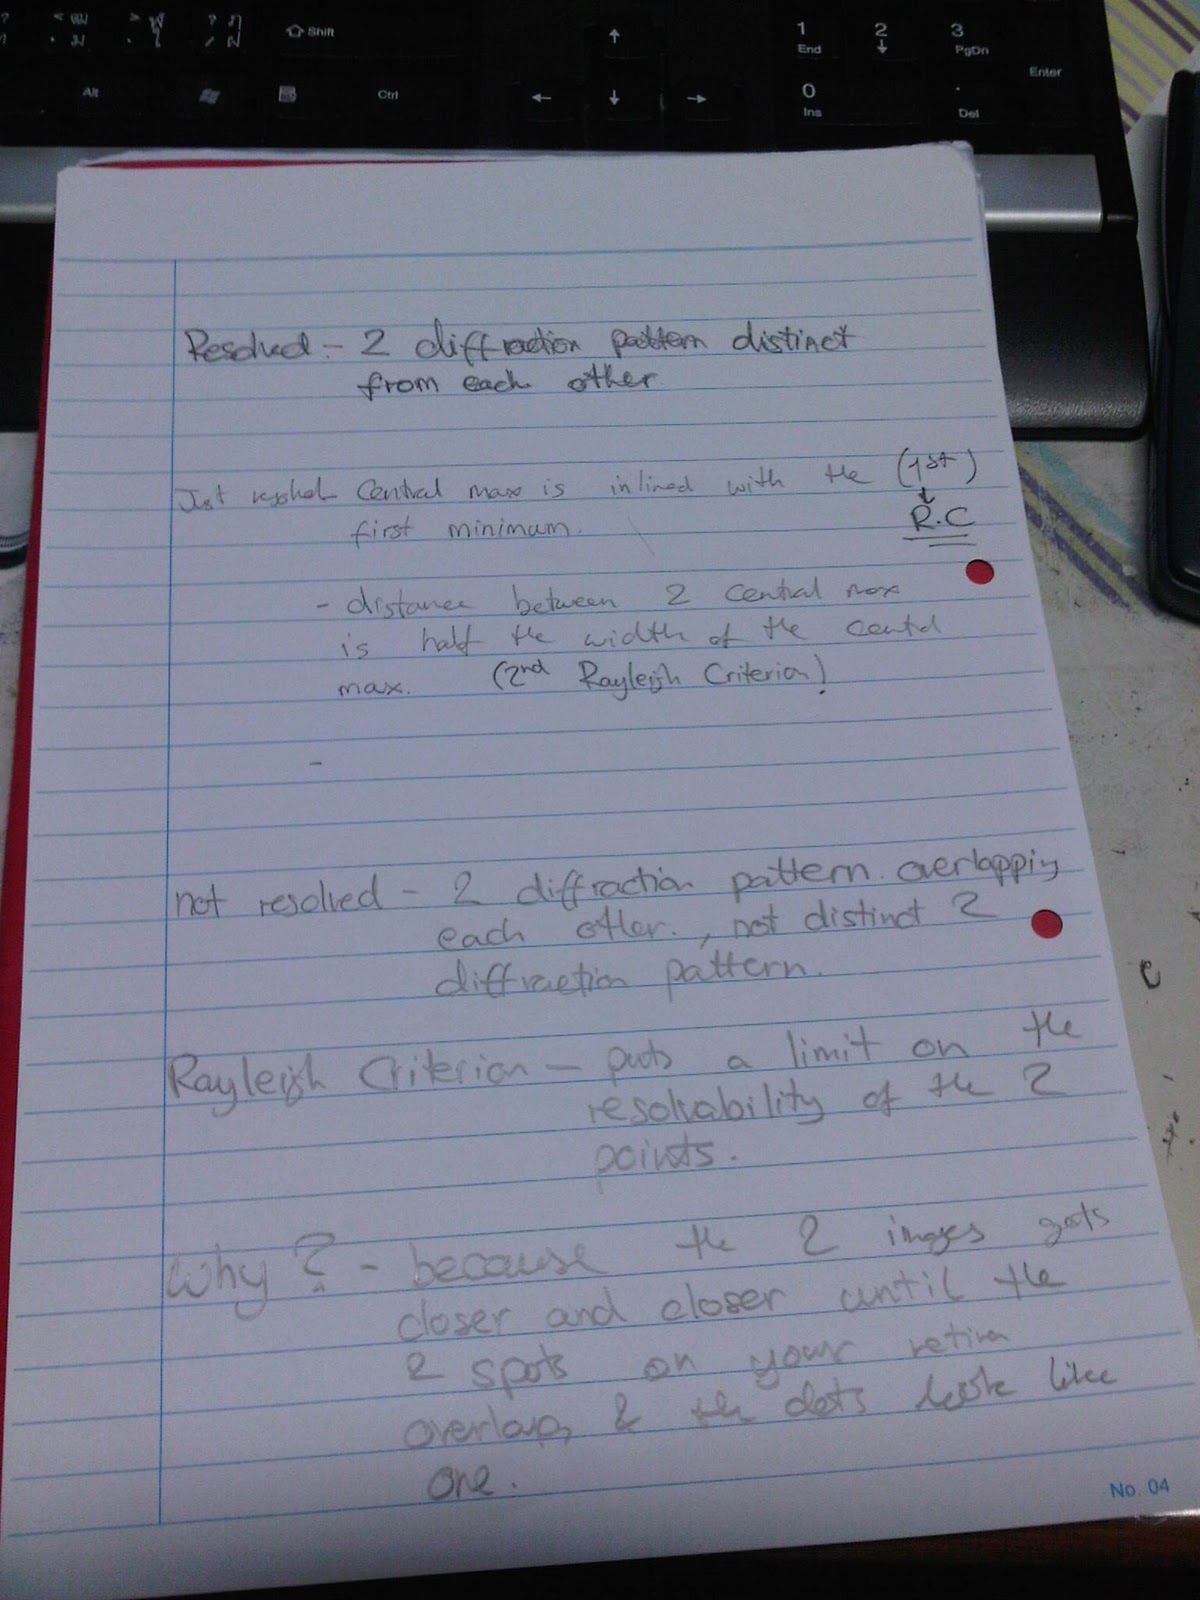 Shift
1
End
2
3
PgDn
Enter
Alt
Ctrl
0
Ins
.
Del
Resolved - 2 diffraction pattern distinct
from each other
Just resolved Central max is inlined with the (1st)
first minimum. R.C
- distance between 2 central max
is half the width of the central
max. (2nd Rayleigh Criteria)
-
not resolved - 2 diffraction pattern overlapping
each other. , not distinct 2
diffraction pattern.
Rayleigh Criterion - puts a limit on the
resolvability of the 2
points.
Why? - because the 2 images gets
closer and closer until the
2 spots on your retina
overlap, & the dots look like
one.
No. 04